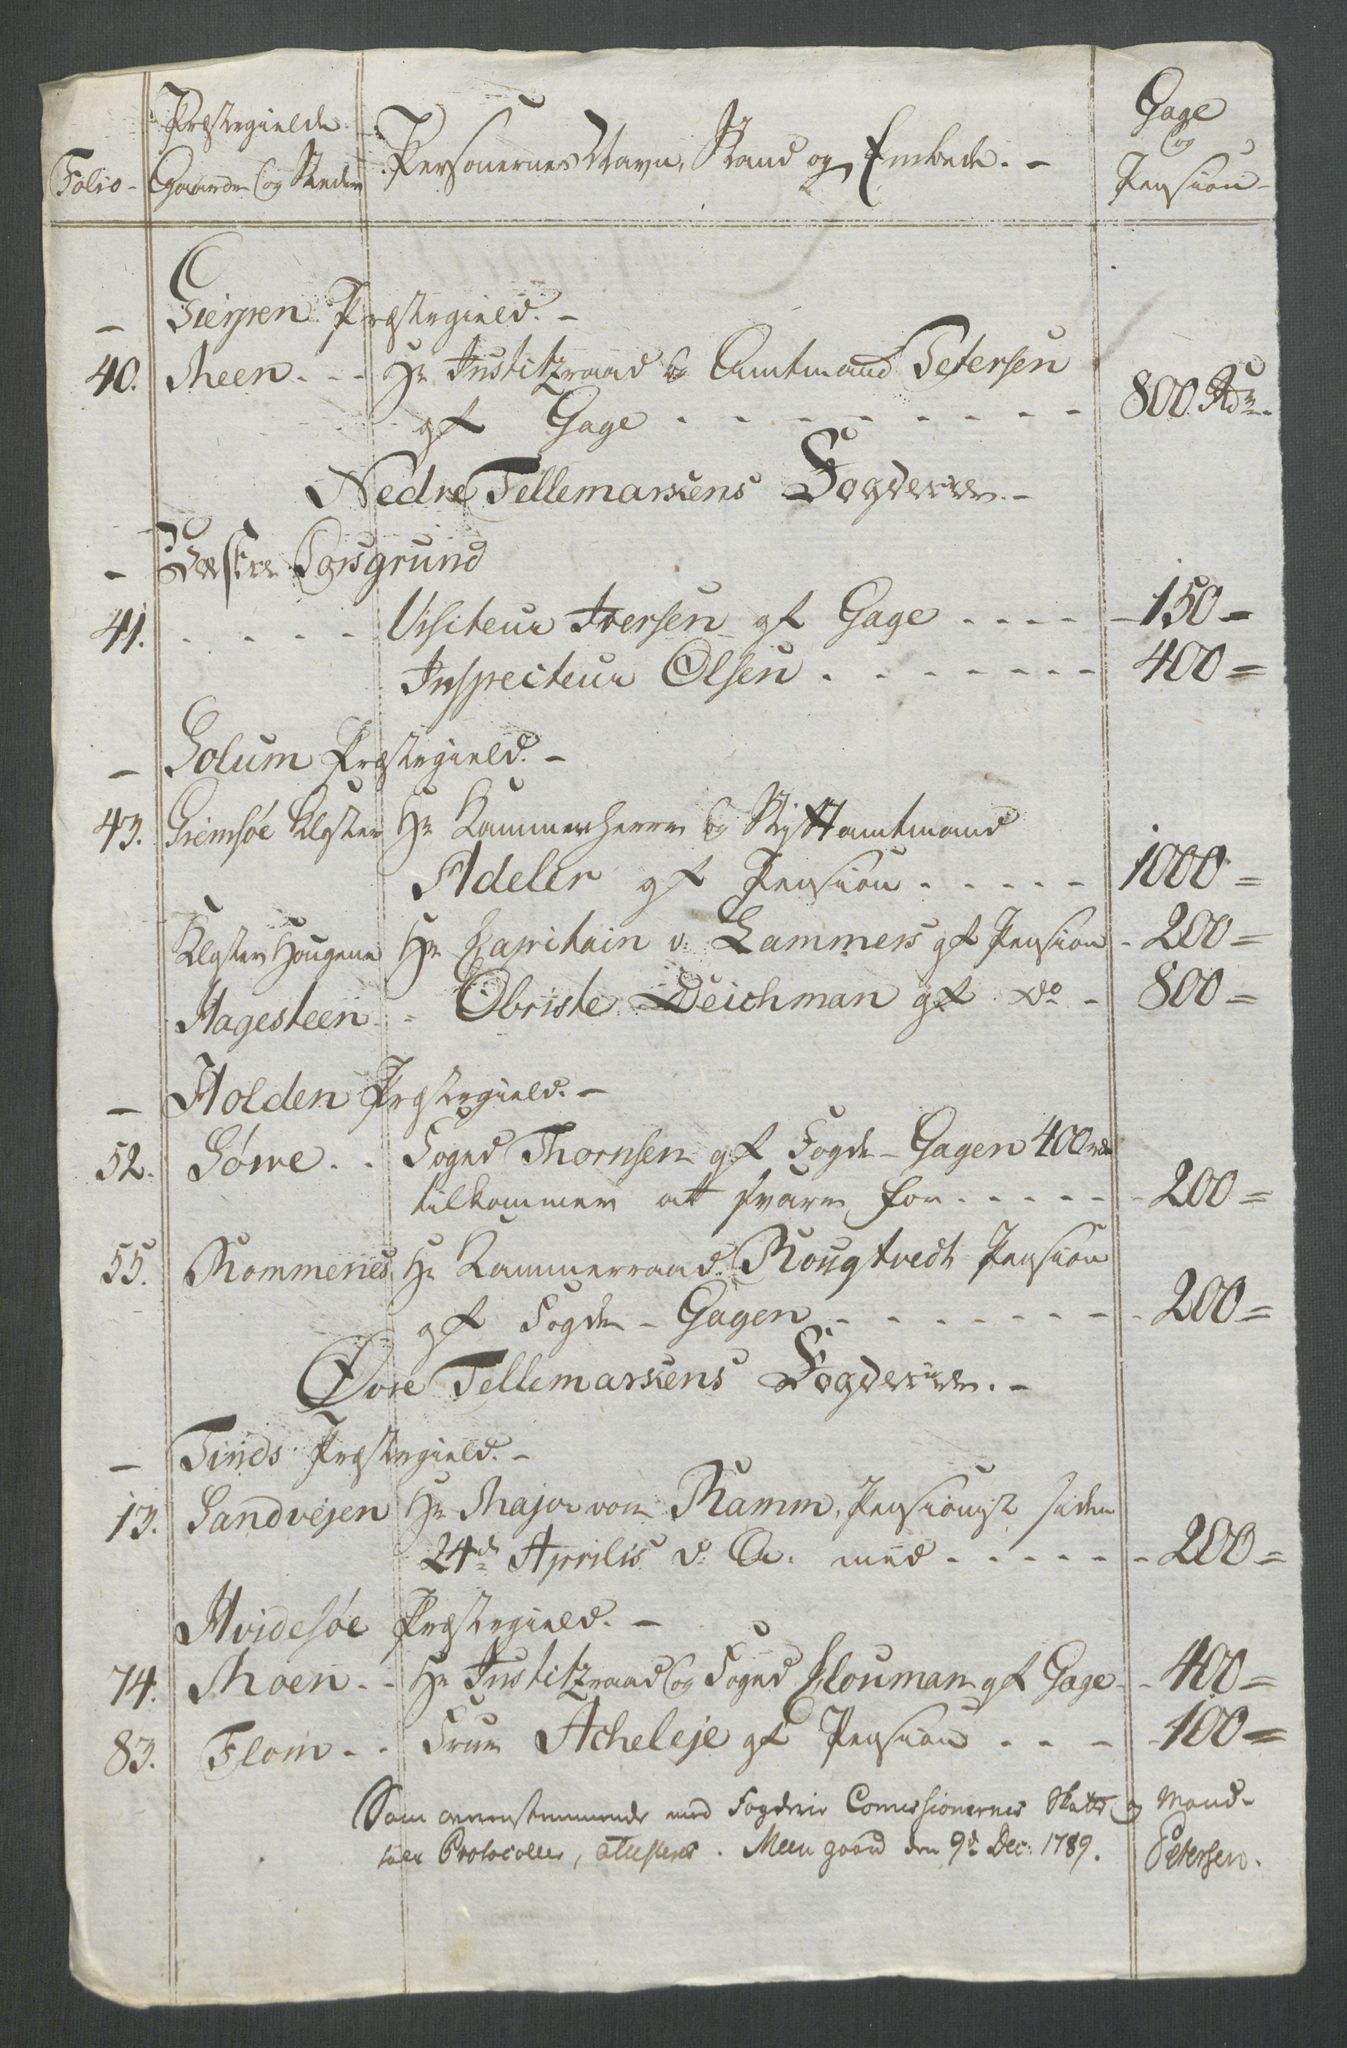 Folio
Præstegielde
Gaarde og Steder
Personernes Navn, Stand og Embede.
Gage
og
Pension
Gierpen Præstegield.
40. Meen . . . Hr Justitzraad og Amtmand Petersen
gf Gage . . . . . . . . . 800 Rdr.
Nedre Tellemarkens Fogderie.
Vestre Porsgrund
41. . . . . Visiteur Iversen gf Gage . . . . 150 =
Inspecteur Olsen . . . . . . . 400 =
Solum Præstegield.
43. Giemsøe Kloster Hr Kammerherre og Stiftamtmand
Adeler gf Pension . . . . . 1000 =
Kloster Hougene Hr Capitain v: Lammers gf Pension - 200 =
Hagesteen - Obriste Deichman gf do - 800 =
Holden Præstegield.
52. Søve . . Foged Thornsen gf Fogde-Gagen 400 rd
tilkommer at svare for . . . . . 200 =
55. Rommenes Hr Kammerraad Rougtvedt Pension
gf Fogde-Gagen . . . . . . . 200 =
Øvre Tellemarkens Fogderie.
Tinds Præstegield.
13. Sandvejen Hr Major von Ramm, Pensionist siden
24de Aprilis d: A: med . . . . . . 200 =
Hvidesøe Præstegield.
74. Moen . . Hr Justitzraad og Foged Clouman gf Gage - 400 =
83. Flom . . Frue Acheleje gf Pension . . . 100 =
Som overenstemmende med Fogderie Comissionernes Skatte og Mand-
tals Protocoller, attesteres. Meen gaard den 9de Dec: 1789. Petersen.